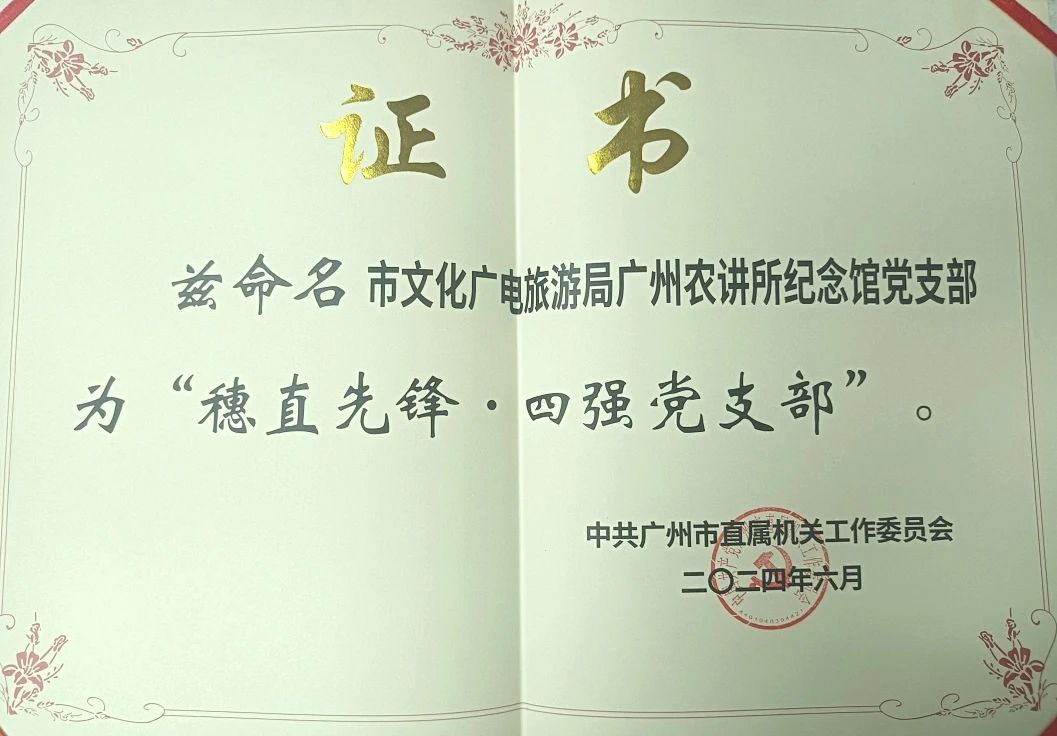 证 书
兹命名 市文化广电旅游局广州农讲所纪念馆党支部
为“穗直先锋·四强党支部”。
中共广州市直属机关工作委员会
二〇二四年六月